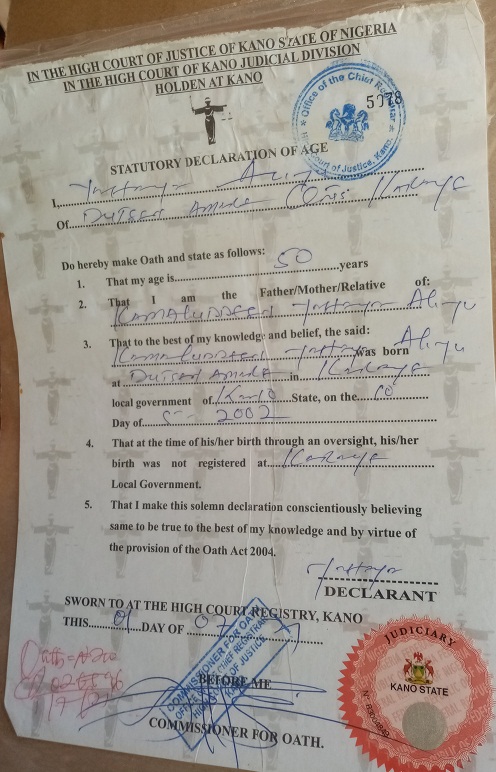 IN THE HIGH COURT OF JUSTICE OF KANO STATE OF NIGERIA
IN THE HIGH COURT OF KANO JUDICIAL DIVISION
HOLDEN AT KANO
Office of the Chief Registrar
5078
Court of Justice, Kano
STATUTORY DECLARATION OF AGE
I, Yahaya Aliyu
Of Dutsen Amare Karaye
Do hereby make Oath and state as follows:
1. That my age is 50 years
2. That I am the Father/Mother/Relative of:
Kamaluddeen Yahaya Aliyu
3. That to the best of my knowledge and belief, the said:
Kamaluddeen Yahaya Aliyu was born
at Dutsen Amare in Karaye
local government of Kano State, on the
Day of 2002
4. That at the time of his/her birth through an oversight, his/her
birth was not registered at Karaye
Local Government.
5. That I make this solemn declaration conscientiously believing
same to be true to the best of my knowledge and by virtue of
the provision of the Oath Act 2004.
Yahaya
DECLARANT
SWORN TO AT THE HIGH COURT REGISTRY, KANO
THIS 01 DAY OF 07
COMMISSIONER FOR OATH
OFFICE OF CHIEF REGISTRAR
HIGH COURT OF JUSTICE
KANO
BEFORE ME
COMMISSIONER FOR OATH.
JUDICIARY
KANO STATE